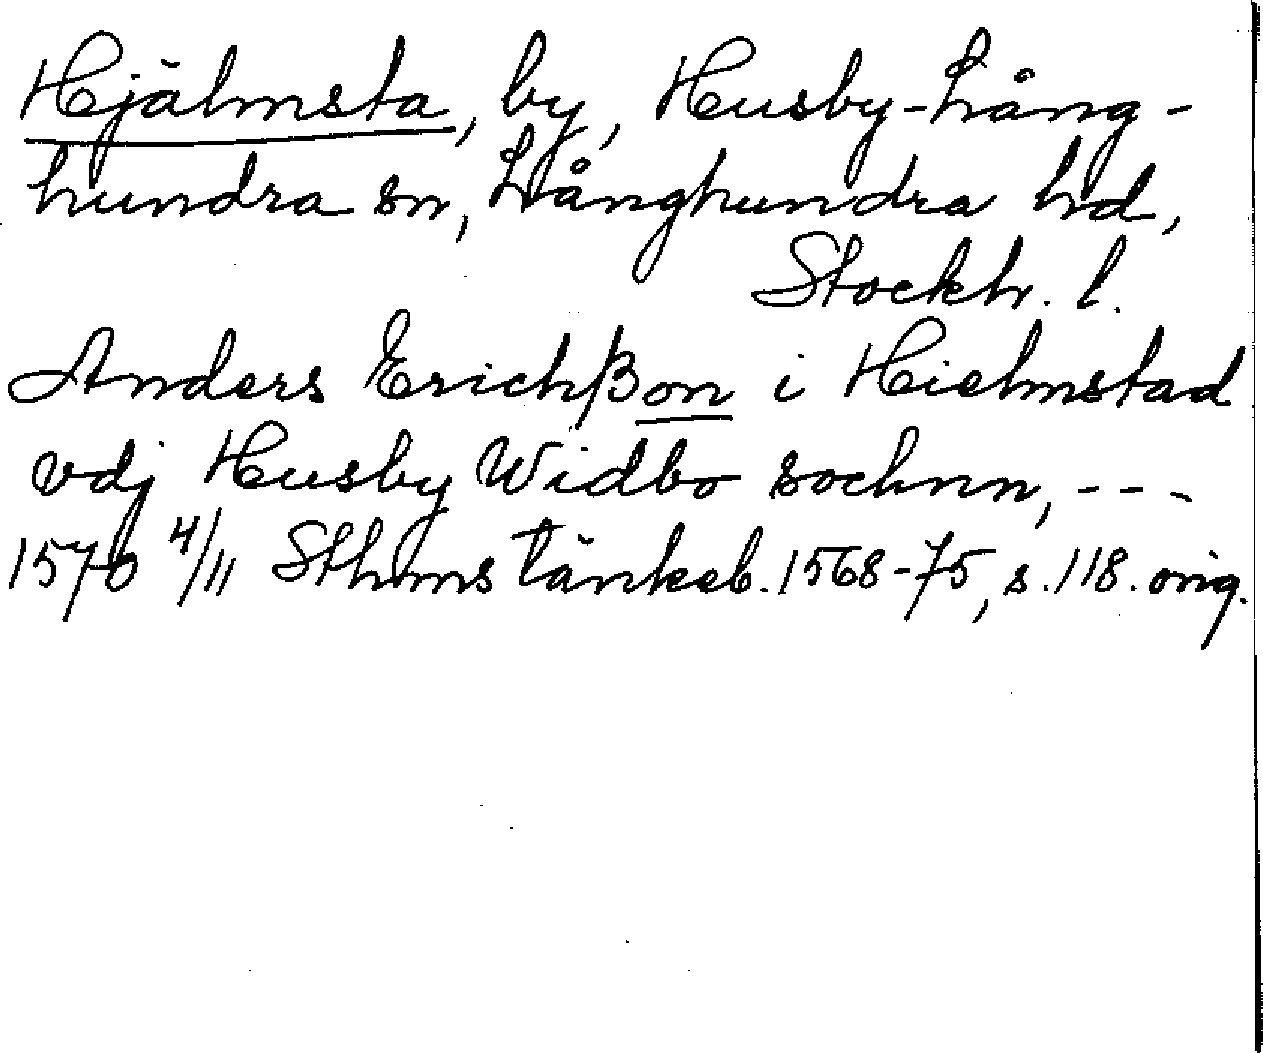 Hjälmsta, by, Husby-Lång-
hundra sn, Långhundra hd,
Stockh. l.
Anders Erichßon i Hielmstad
vdj Husby Widbo sochnn, ---
1570 4/11 Sthms tänkeb. 1568-75, s. 118. orig.